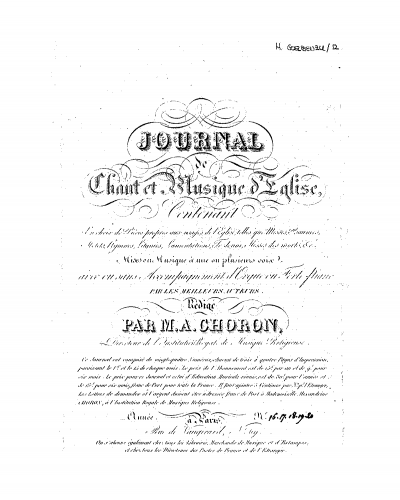 JOURNAL
de
Chant et Musique d'Eglise,
Contenant
Un choix de Pièces propres aux usages de l'Eglise, telles que Messes, Pseaumes,
Motets, Hymnes, Litanies, Lamentations, Te deum, Messes des morts, &c.
Mises en Musique à une ou plusieurs voix
avec ou sans Accompagnement d'Orgue ou Forte Piano
PAR LES MEILLEURS AUTEURS.
Rédigé
PAR M. A. CHORON,
Directeur de l'Institution Royale de Musique Religieuse.
Ce Journal est composé de vingt quatre Numéros, chacun de trois à quatre Pages d'Impression,
paraissant le 1er et le 15 de chaque mois. Le prix de l'Abonnement est de 15f par an et de 9f pour
six mois. Le prix pour ce Journal et celui d'Education Musicale réunis, est de 30f pour l'année et
de 18f pour six mois, franc de Port pour toute la France. Il faut ajouter 5 Centimes par No pr l'Etranger.
Les Lettres de demandes et l'argent doivent être adressés franc de Port à Mademoiselle Alexandrine
CHORON, à l'Institution Royale de Musique Religieuse.
Année. à Paris, No. 16-17-18-19-20
Rue de Vaugirard, No 69.
On s'abonne également chez tous les Libraires, Marchands de Musique et d'Estampes,
et chez tous les Directeurs des Postes de France et de l'Etranger.